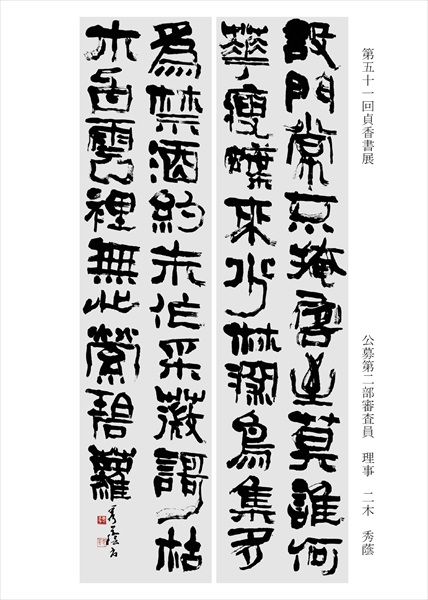 第五十一回貞香書展
公募第二部審査員　理事　二木　秀蔭
設門常掩莫誰何
華瘦蝶來少林鳥集多
為禁酒約未作采薇謌枯
木雲裡無此縈碧蘿